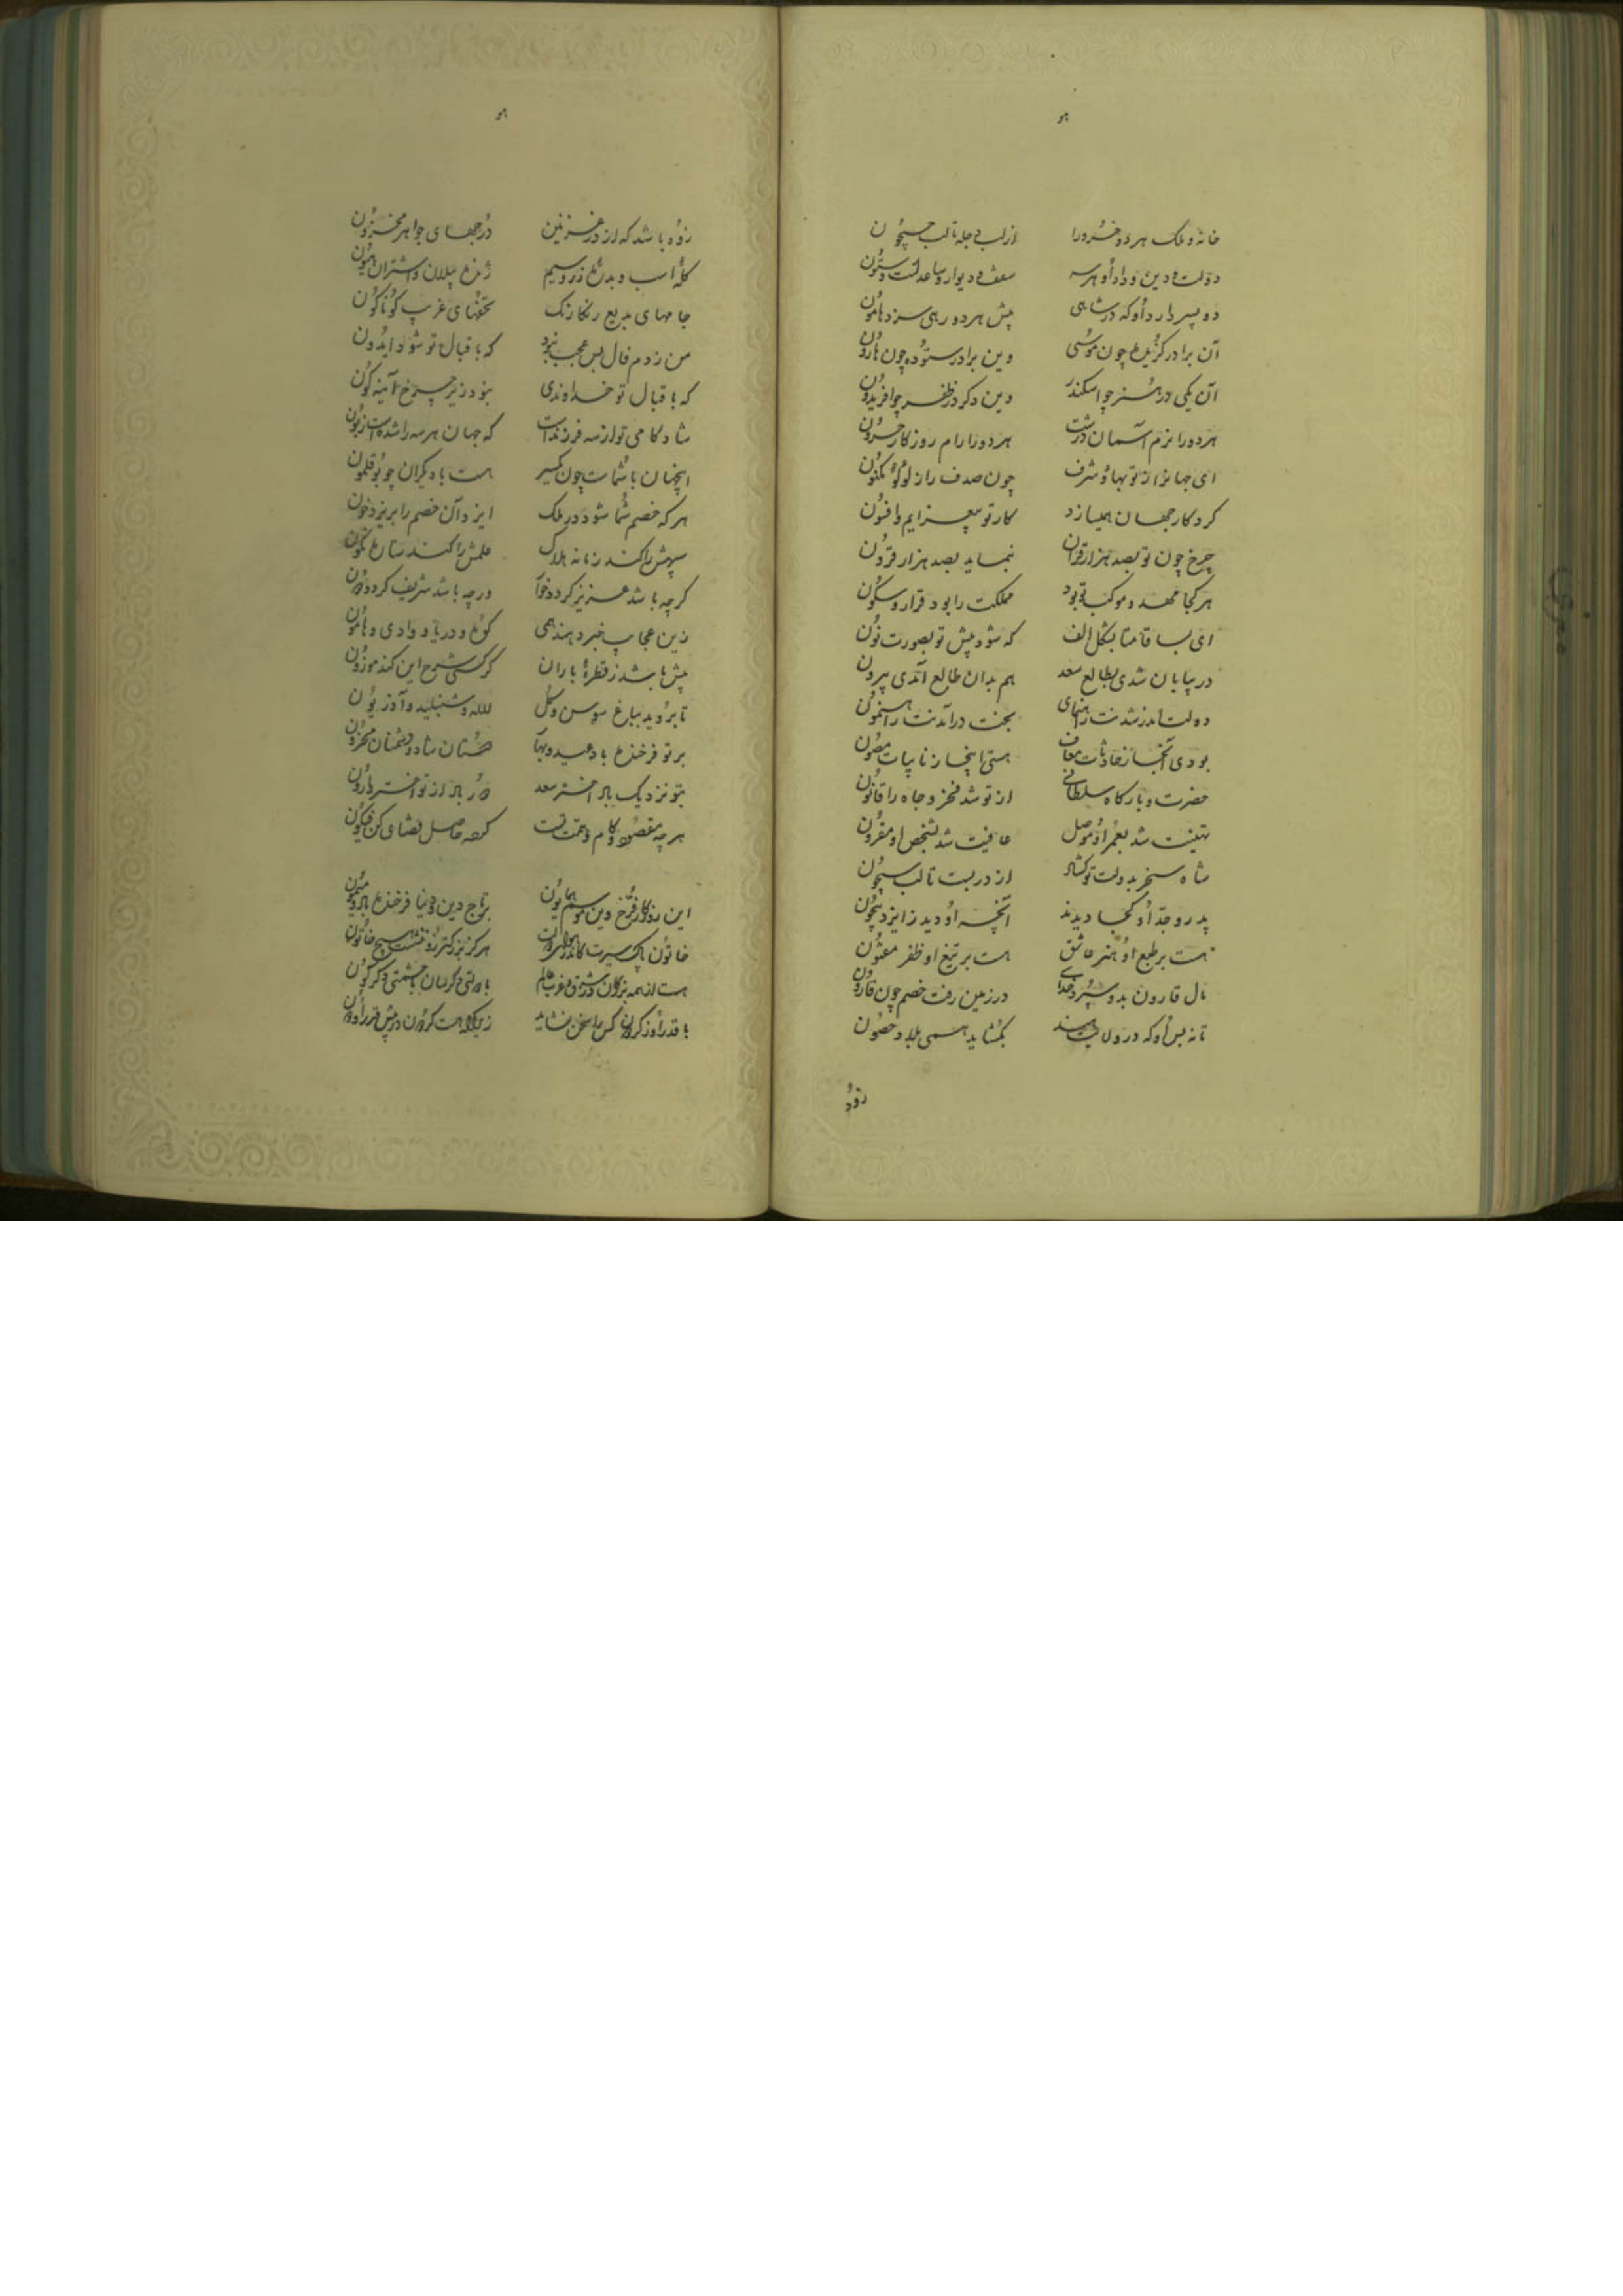 هو
خانه و ملک هر دو خسرو را از لب دجله تا لب جیحون
دولت و دین و داد او هر سه سقف و دیوار و ساعدلت و ستون
دو پسر دارد او که در شاهی پیش هر دو رهی سزد مامون
آن برادر گزیده چون موسی وین برادر ستوده چون هارون
آن یکی در هنر چو اسکندر وین دگر در ظفر چو افریدون
هر دو را نرم آسمان درشت هر دو را رام روزگار حرون
ای جهانرا از تو بها و شرف چون صدف را از لؤلؤ مکنون
کردگار جهان همیسازد کار تو بیعزایم و افسون
چرخ چون تو بصد هزار قران ننماید بصد هزار قرون
هر کجا مهد و موکب تو بود مملکت را بود قرار و سکون
ای بسا قامتا بشکل الف که شود پیش تو بصورت نون
در بیابان شدی بطالع سعد هم بدان طالع آمدی بیرون
دولت اندر شدنت راهنمای بخت در آمدنت راهنمون
بودی آنجا ز حادثات معاف هستی اینجا ز نایبات مصون
حضرت و بارگاه سلطانی از تو شد فخر و جاه را قانون
تهنیت شد بعمر او موصل عافیت شد بشخص او مقرون
شاه سنجر بدولت تو گشاد از در بست تا لب سیحون
پدر و جد او کجا دیدند آنچه او دید ز ایزد بیچون
هست بر طبع او هنر عاشق هست بر تیغ او ظفر مفتون
مال قارون بدو سپرد خدای در زمین رفت خصم چون قارون
تا نه بس او که در ولایت هند بگشاید همی بلاد و حصون
زود
هو
زود باشد که از در غزنین درجهای جواهر مخزون
گلهٔ اسب و بدرهٔ زر و سیم ژنده پیلان و اشتران هیون
جامهای بدیع رنگارنگ تحفهای غریب گوناگون
من زدم فال بس عجب نبود که باقبال تو شود ایدون
که باقبال تو خداوندی نبود زیر چرخ آینه گون
شادکامی تو از سه فرزندت که جهان هر سه را شده است زبون
اینچنان با شماست چون اکسیر هست با دیگران چو بوقلمون
هر که خصم شما شود در ملک ایزد آن خصم را بریزد خون
سپهش را کند زمانه هلاک علمش را کند ستاره نگون
گرچه باشد عزیز گردد خوار ورچه باشد شریف گردد دون
زین عجایب خبر دهند همی کوه و دریا و وادی و هامون
بیش باشد ز قطرهٔ باران گر کسی شرح این کند موزون
تا بروید بباغ سوسن و گل لاله و شنبلید و آذریون
بر تو فرخنده باد عید و بهار دوستان شاد و دشمنان محزون
بتو نزدیک باد اختر سعد دور باد از تو اختر وارون
هر چه مقصود و کام و همت تست کرده حاصل قضای کن فیکون
این روزگار فرخ وین موسم همایون بر تاج دین و دنیا فرخنده باد و میمون
خاتون پاک سیرت کاندر هزار دولت هرگز بزرگتر زو ننشست هیچ خاتون
هست از همه بزرگان در شرق و غرب عالم با دولتی دگرسان با حشمتی دگرگون
با قدر او ز گردون کس را سخن نشاید زیرا که هست گردون در پیش قدر او دون